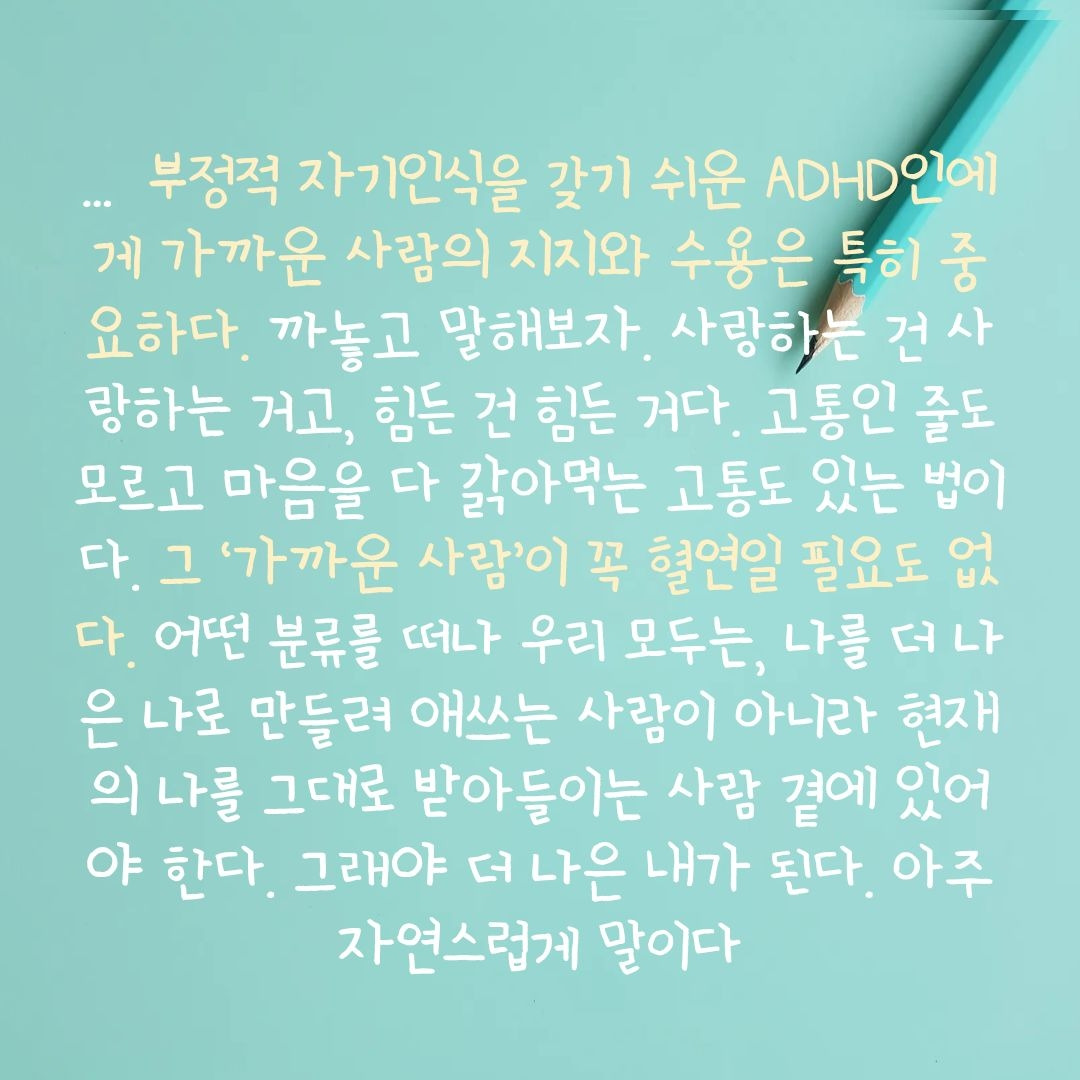 ... 부정적 자기인식을 갖기 쉬운 ADHD인에
게 가까운 사람의 지지와 수용은 특히 중
요하다. 까놓고 말해보자. 사랑하는 건 사
랑하는 거고, 힘든 건 힘든 거다. 고통인 줄도
모르고 마음을 다 갉아먹는 고통도 있는 법이
다. 그 ‘가까운 사람’이 꼭 혈연일 필요도 없
다. 어떤 분류를 떠나 우리 모두는, 나를 더 나
은 나로 만들려 애쓰는 사람이 아니라 현재
의 나를 그대로 받아들이는 사람 곁에 있어
야 한다. 그래야 더 나은 내가 된다. 아주
자연스럽게 말이다